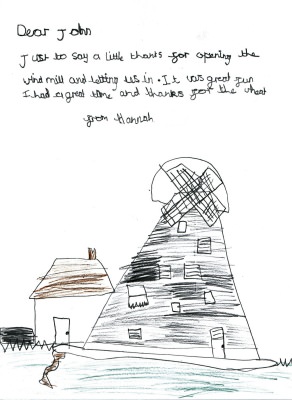 Dear John
Just to say a little thanks for opening the
wind mill and letting us in. It was great fun
I had a great time and thanks for the wheat
from Hannah